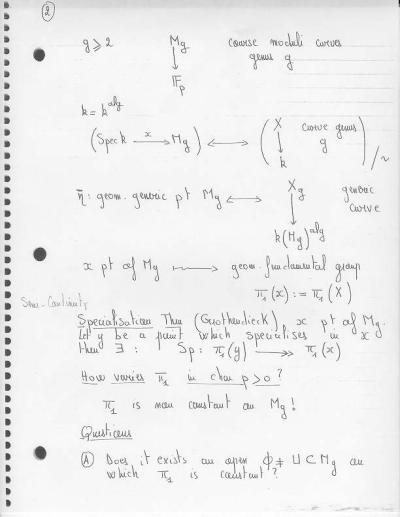 ②
g ⩾ 2 M_g coarse moduli curves
↓ genus g
𝔽_p
k = k^{alg}
(Spec k —x→ M_g) ⟷ ( X curve genus
↓ g
k ) / ~
η̄ : geom. generic pt M_g ⟷ X_g generic
↓ curve
k(M_g)^{alg}
x pt of M_g ⇝ geom. fundamental group
π_1(x) := π_1(X)
Semi-Continuity
Specialisation Thm (Grothendieck) x pt of M_g.
Let y be a point which specialises in x
then ∃ : Sp : π_1(y) ↠ π_1(x)
How varies π_1 in char p>0 ?
π_1 is non constant on M_g !
Questions
Ⓐ Does it exists an open ϕ ≠ U ⊂ M_g on
which π_1 is constant ?